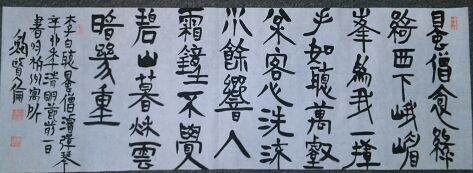 蜀僧抱綠
綺西下峨嵋
峯為我一揮
手如聽萬壑
松客心洗流
水餘響入
霜鐘不覺
碧山暮秋雲
暗幾重
李白聽蜀僧濬彈琴
辛卯年清明節前一日